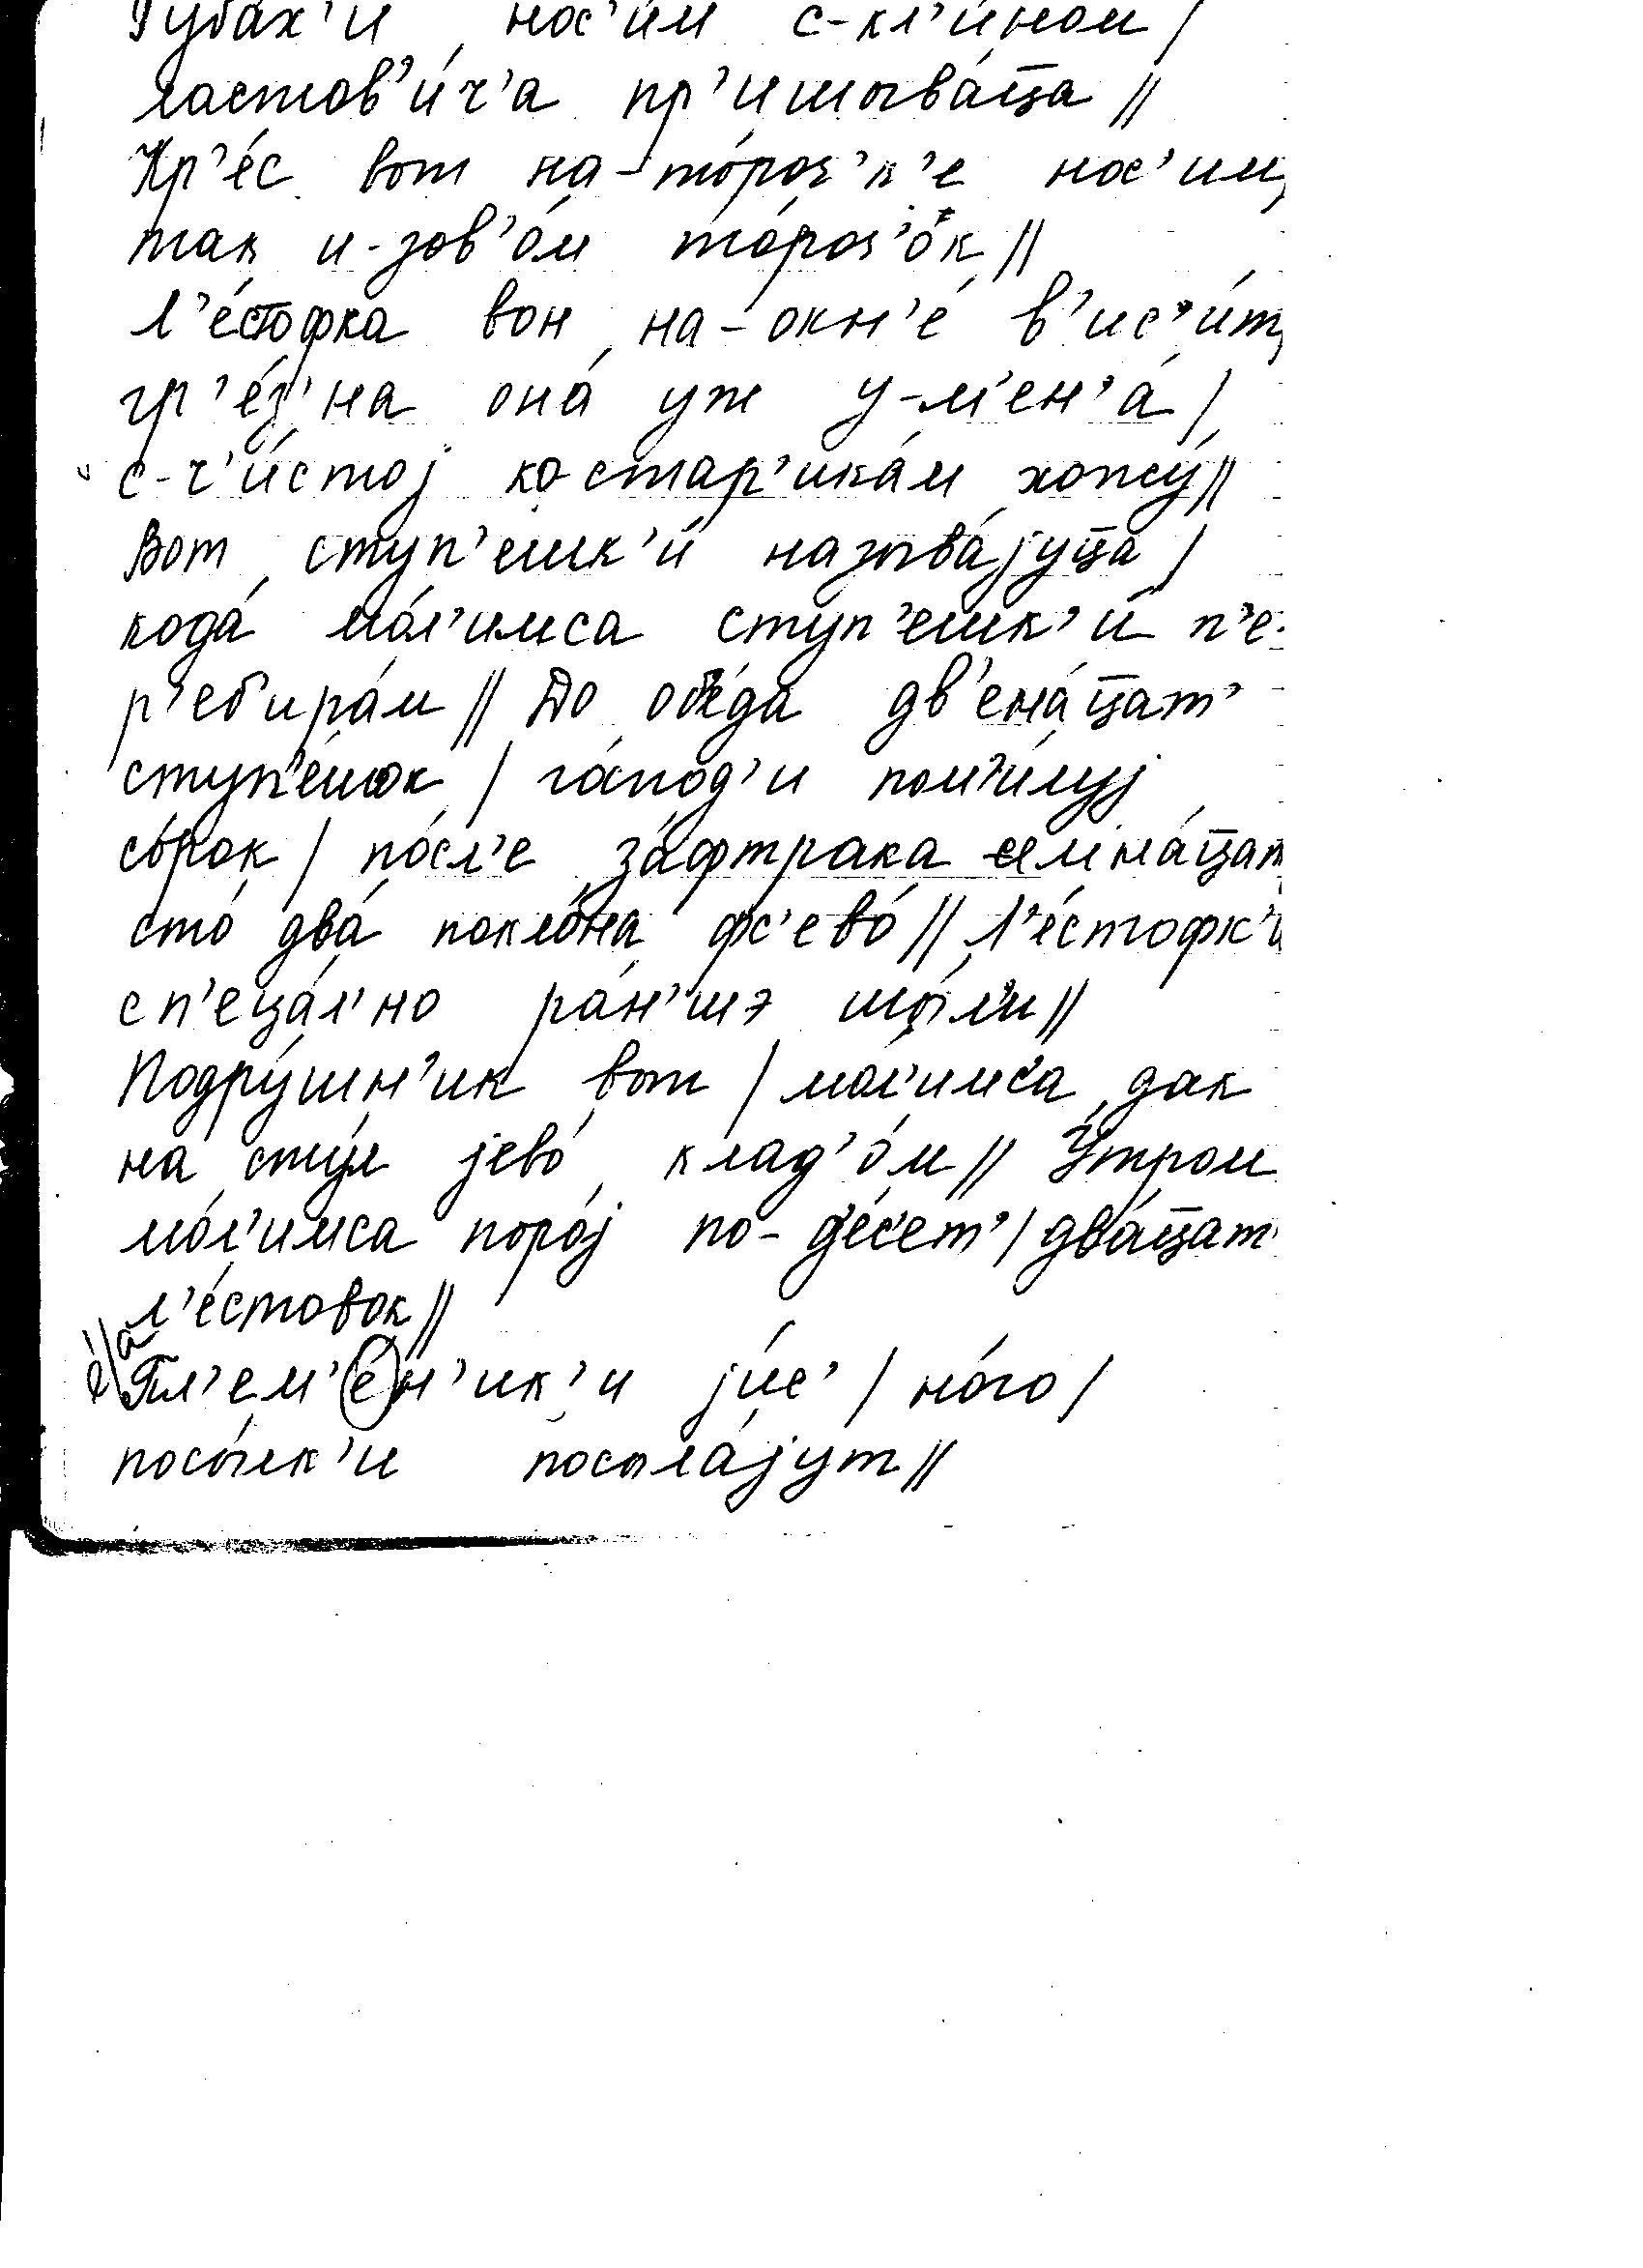 Рубах'и нос'им с-кл'и́ном /
ластов'и́ч'а пр'ишыва́ц̅а //
Кр'е́с вот на-то́роч'к'е нос'им,
так и-зов'о́м то́роч'о́к //
Л'е́стофка вон на-окн'е́ в'ис'и́т,
гр'е́з'на она́ уж у-м'ен'а́ /
с-ч'и́стој ко стар'ика́м хожу́ //
Вот ступ'ешк'и́ называ́јуц̅а /
кода́ мо́л'имса ступ'ешк'и́ п'е-
р'еб'ира́м // До об'е́да дв'ена́ц̅ат'
ступ'е́шок / го́спод'и пом'и́луј
со́рок / по́сл'е за́фтрака с'емна́ц̅ат
сто́ два́ покло́на фс'ево́ // Л'е́стофк'и
сп'еца́л'но ра́н'шэ шы́л'и //
Подру́шн'ик вот / мо́л'имса дак
на сту́л јево́ клад'о́м // У́тром
мо́л'имса поро́ј по-д'е́с'ет' / два́ц̅ат'
л'е́стовок //
Пл'ем'е́н'ик'и ји́с' / но́го /
посы́лк'и посыла́јут //